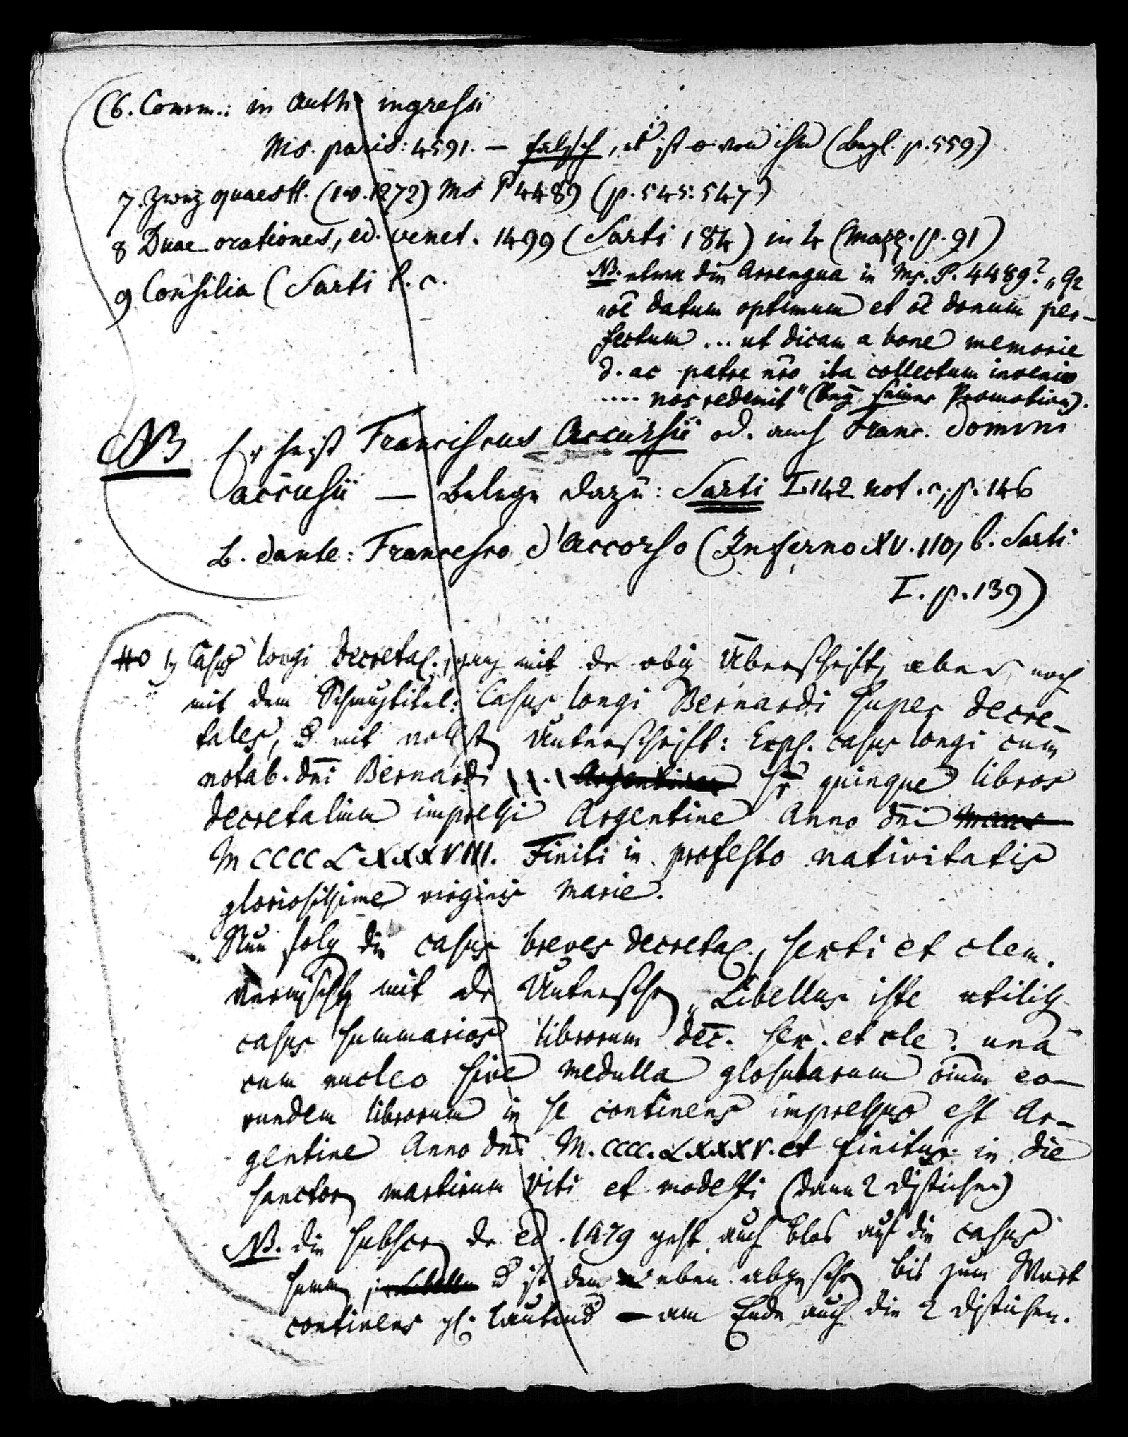 (6. Comm.: in Auth. ingressi
Ms. paris: 4591. — falsch, es ist o von ihm (Vergl. p. 559)
7. Zwey quaestt. (1 v. 1272) Ms P 4489 (p. 545. 547.)
8 Duae orationes, ed. venet. 1499 (Sarti 184) in 4 (Mazz. p. 91)
9 Consilia (Sarti l. c.
NB. etwa die Arrengua in Ms. P. 4489? „Qz
oē datum optimum et oē donum per-
fectum ... ut dicam a bone memorie
d. ac patre nr̄o ita collectum invenio
.... nos redemit" (bey seiner Promotion).
NB Er heist Franciscus Accursii od. auch Franc. Domini
accusii — Belege dazu: Sarti I. 142 not. c, p. 146
L. dante: Francesco d'Accorso (Inferno XV. 110, b. Sarti
I. p. 139)
Casus longi Decretal., ganz mit der obig Überschrift, aber noch
mit dem Schmuztitel: Casus longi Bernardi super decre-
tales, u mit Unterschrift: Expl. casus longi cum
notab. dn̄i Bernardi Argentinen sr̄ quinque libros
decretalium impressi Argentine Anno dni
MCCCCLXXXVIII. Finiti in profesto nativitatis
gloriosissime virginis Marie.
Nun folg die casus breves decretal., sexti et clem.
mit der Unterschr „Libellus iste utilis
casus summarios librorum dec̄. sex. et cle. una
cum nucleo sive medulla glosularum oīum eo-
rundem librorum in se continens impressus est Ar-
gentine Anno dni M.CCCC.LXXXV. et finitus in die
sanctor martirum Viti et modesti (dann 2 Distichen)
NB. die subscr der ed. 1479 geht auch blos auf die casus
summ, u ist dem eben abgeschr bis zum Wort
continens gl. lautend — am Ende auch die 2 Distichen.